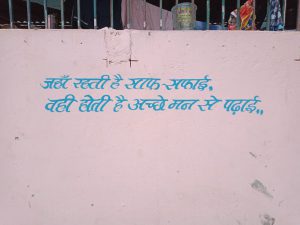 जहाँ रहती है साफ सफाई,
वही होती है अच्छे मन से पढ़ाई,,